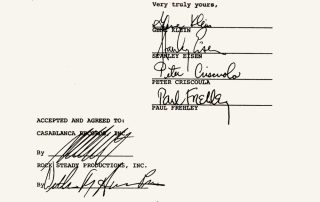 Very truly yours,
GENE KLEIN
STANLEY EISEN
Peter Criscoula
PETER CRISCOULA
Paul Frehley
PAUL FREHLEY
ACCEPTED AND AGREED TO:
CASABLANCA RECORDS, INC.
By
ROCK STEADY PRODUCTIONS, INC.
By